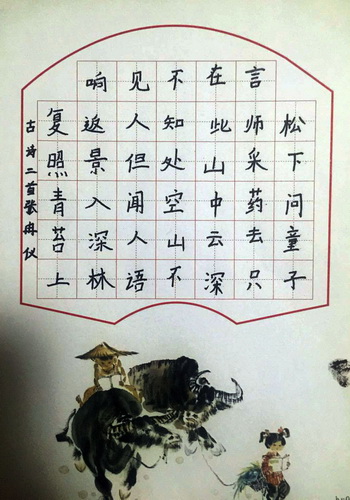 松下问童子
言师采药去只
在此山中云深
不知处空山不
见人但闻人语
响返景入深林
复照青苔上
古诗二首张冉仪